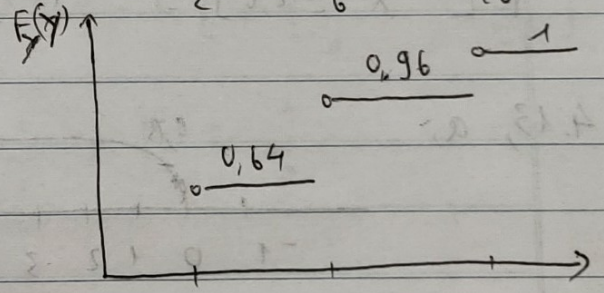 F_y(y)
1
0,96
0,64